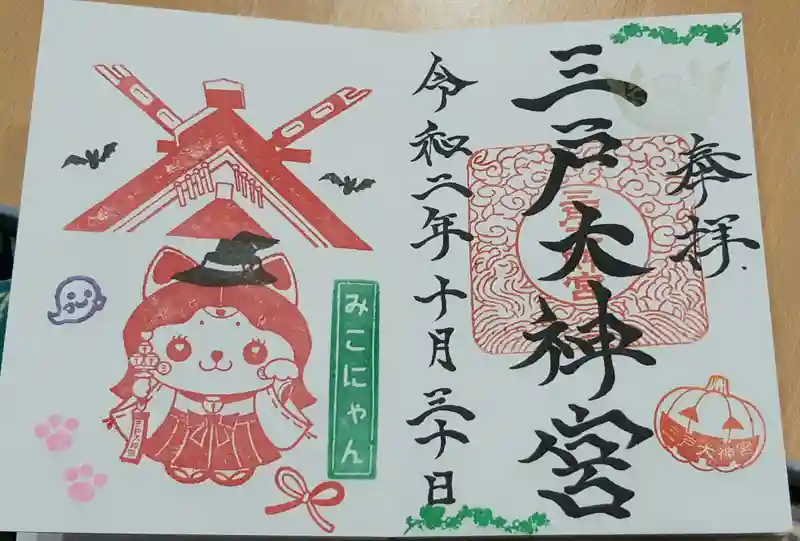 奉拝
三戸大神宮
三戸大神宮
三戸大神宮
令和二年十月三十日
みこにゃん
三戸大神宮